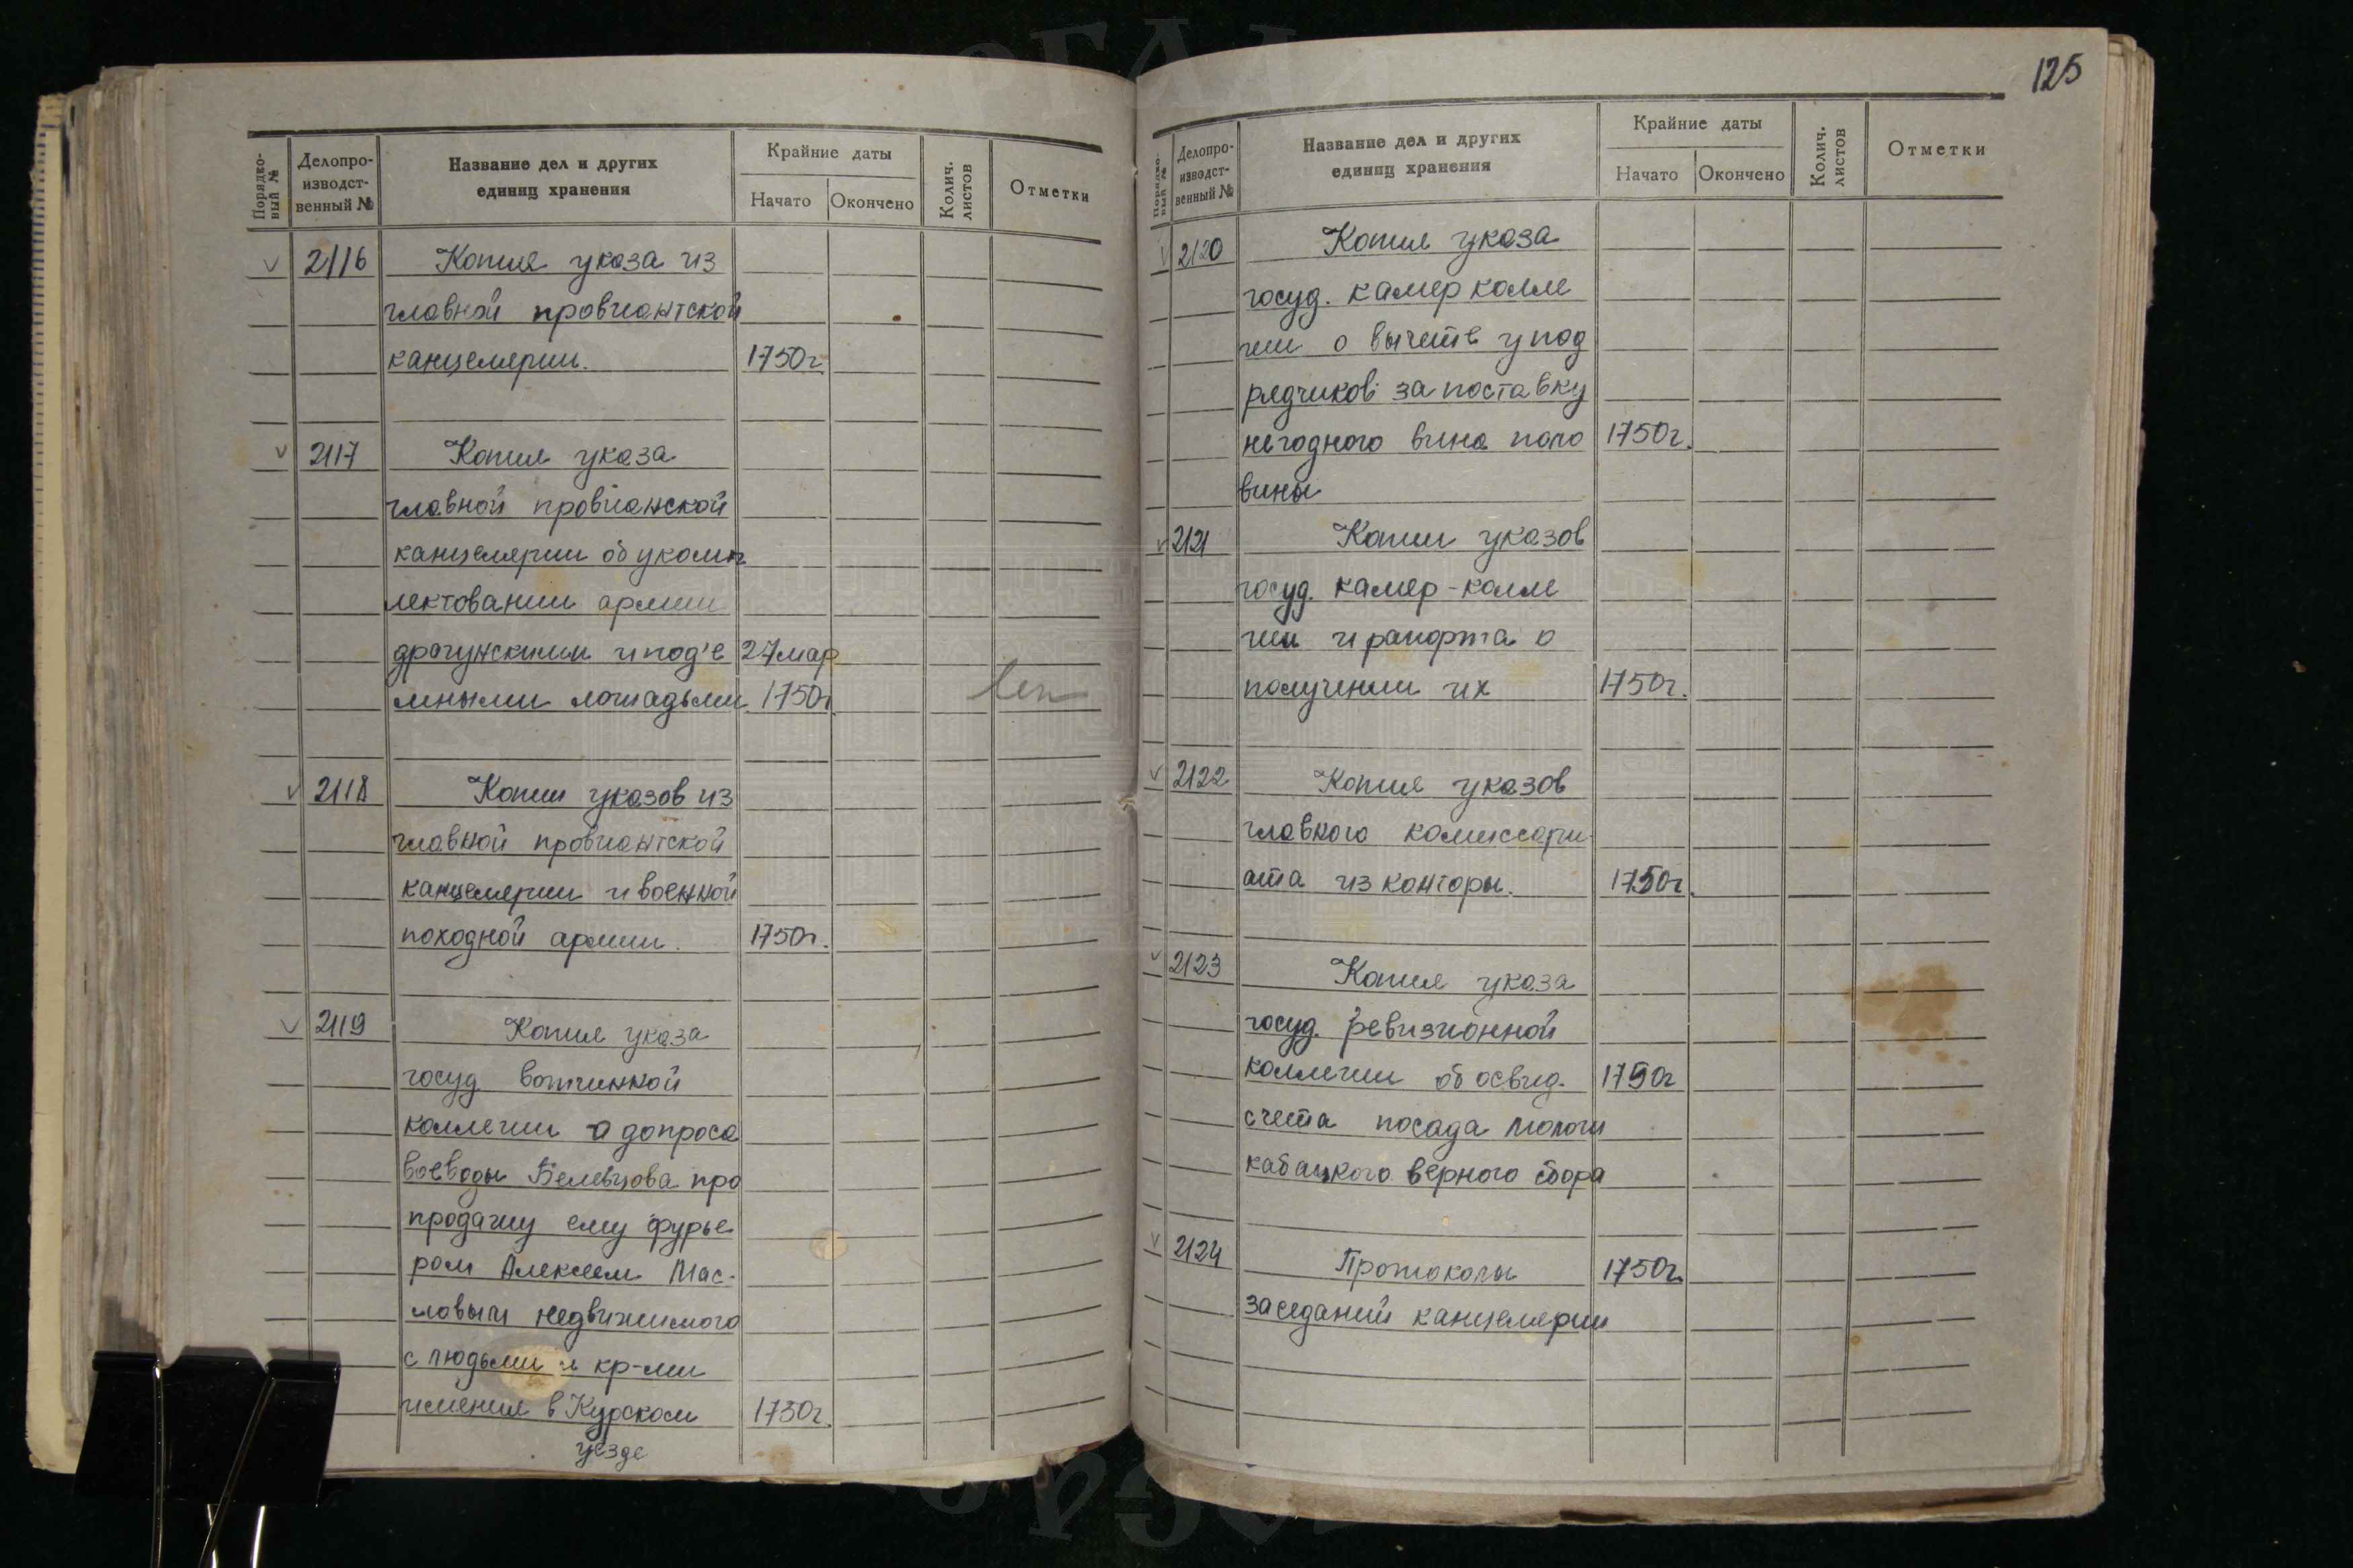 Порядко-
вый №
Делопро-
изводст-
венный №
Название дел и других
единиц хранения
Крайние даты
Начато
Окончено
Колич.
листов
Отметки
V 2116 Копия указа из
главной провиантской
канцелярии. 1750г
V 2117 Копия указа
главной провианской
канцелярии об укомп
лектовании армии
драгунскими и под'е 27 мар
мными лошадьми 1750г.
V 2118 Копии указов из
главной провиантской
канцелярии и военной
походной армии. 1750г.
V 2119 Копия указа
госуд. вотчинной
коллегии о допросе
воеводы Белевцова про
продажу ему фурье
ром Алексеем Мас-
ловым недвижимого
с людьми и кр-ми
имения в Курском 1750г.
уезде
125
Порядко-
вый №
Делопро-
изводст-
венный №
Название дел и других
единиц хранения
Крайние даты
Начато
Окончено
Колич.
листов
Отметки
V 2120 Копия указа
госуд. камер колле
гии о вычете у под
рядчиков за поставку
негодного вина поло 1750г.
вины
V 2121 Копии указов
госуд. камер-колле
гии и рапорта о
получении их 1750г.
V 2122 Копия указов
главного комиссари
ата из конторы. 1750г.
V 2123 Копия указа
госуд. ревизионной
коллегии об освид. 1750г
счета посада Мологи
кабацкого верного сбора
V 2124 Протоколы 1750г.
заседаний канцелярии